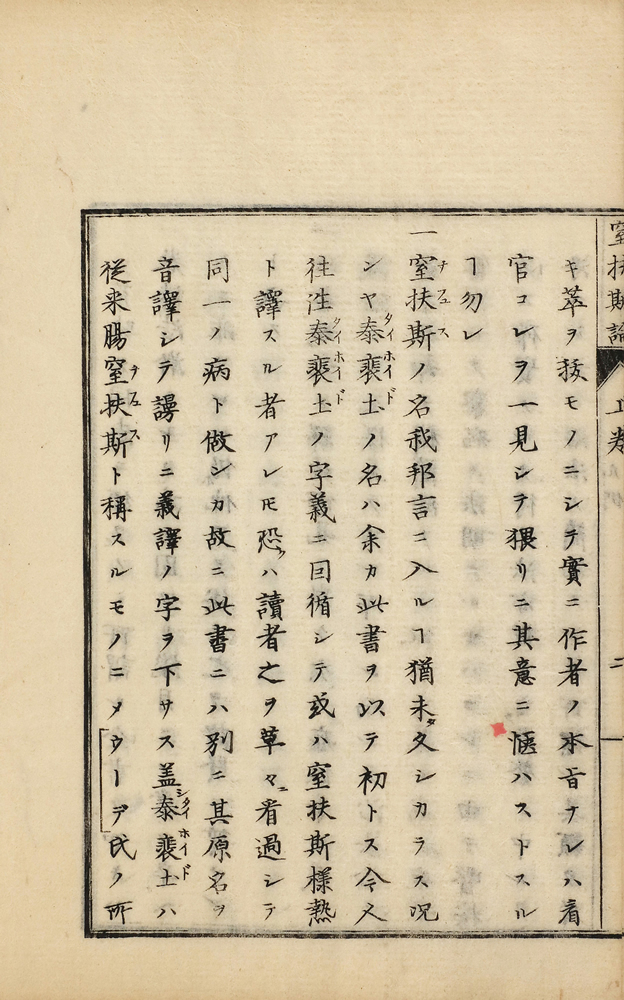 窒扶斯論 上巻 二
キ萃ヲ抜モノニシテ實ニ作者ノ本旨ナレハ看
官コレヲ一見シテ猥リニ其意ニ愜ハストスル
ヿ勿レ
一窒扶斯ノ名我邦言ニ入ルヿ猶未タ久シカラス况
ンヤ泰裴土ノ名ハ余カ此書ヲ以テ初トス今又
往往泰裴土ノ字義ニ因循シテ或ハ窒扶斯様熱
ト譯スル者アレモ恐クハ讀者之ヲ草々ニ看過シテ
同一ノ病ト做シカ故ニ此書ニハ別ニ其原名ヲ
音譯シテ謾リニ義譯ノ字ヲ下サス盖泰裴土ハ
従来腸窒扶斯ト稱スルモノニメウーデ氏ノ所